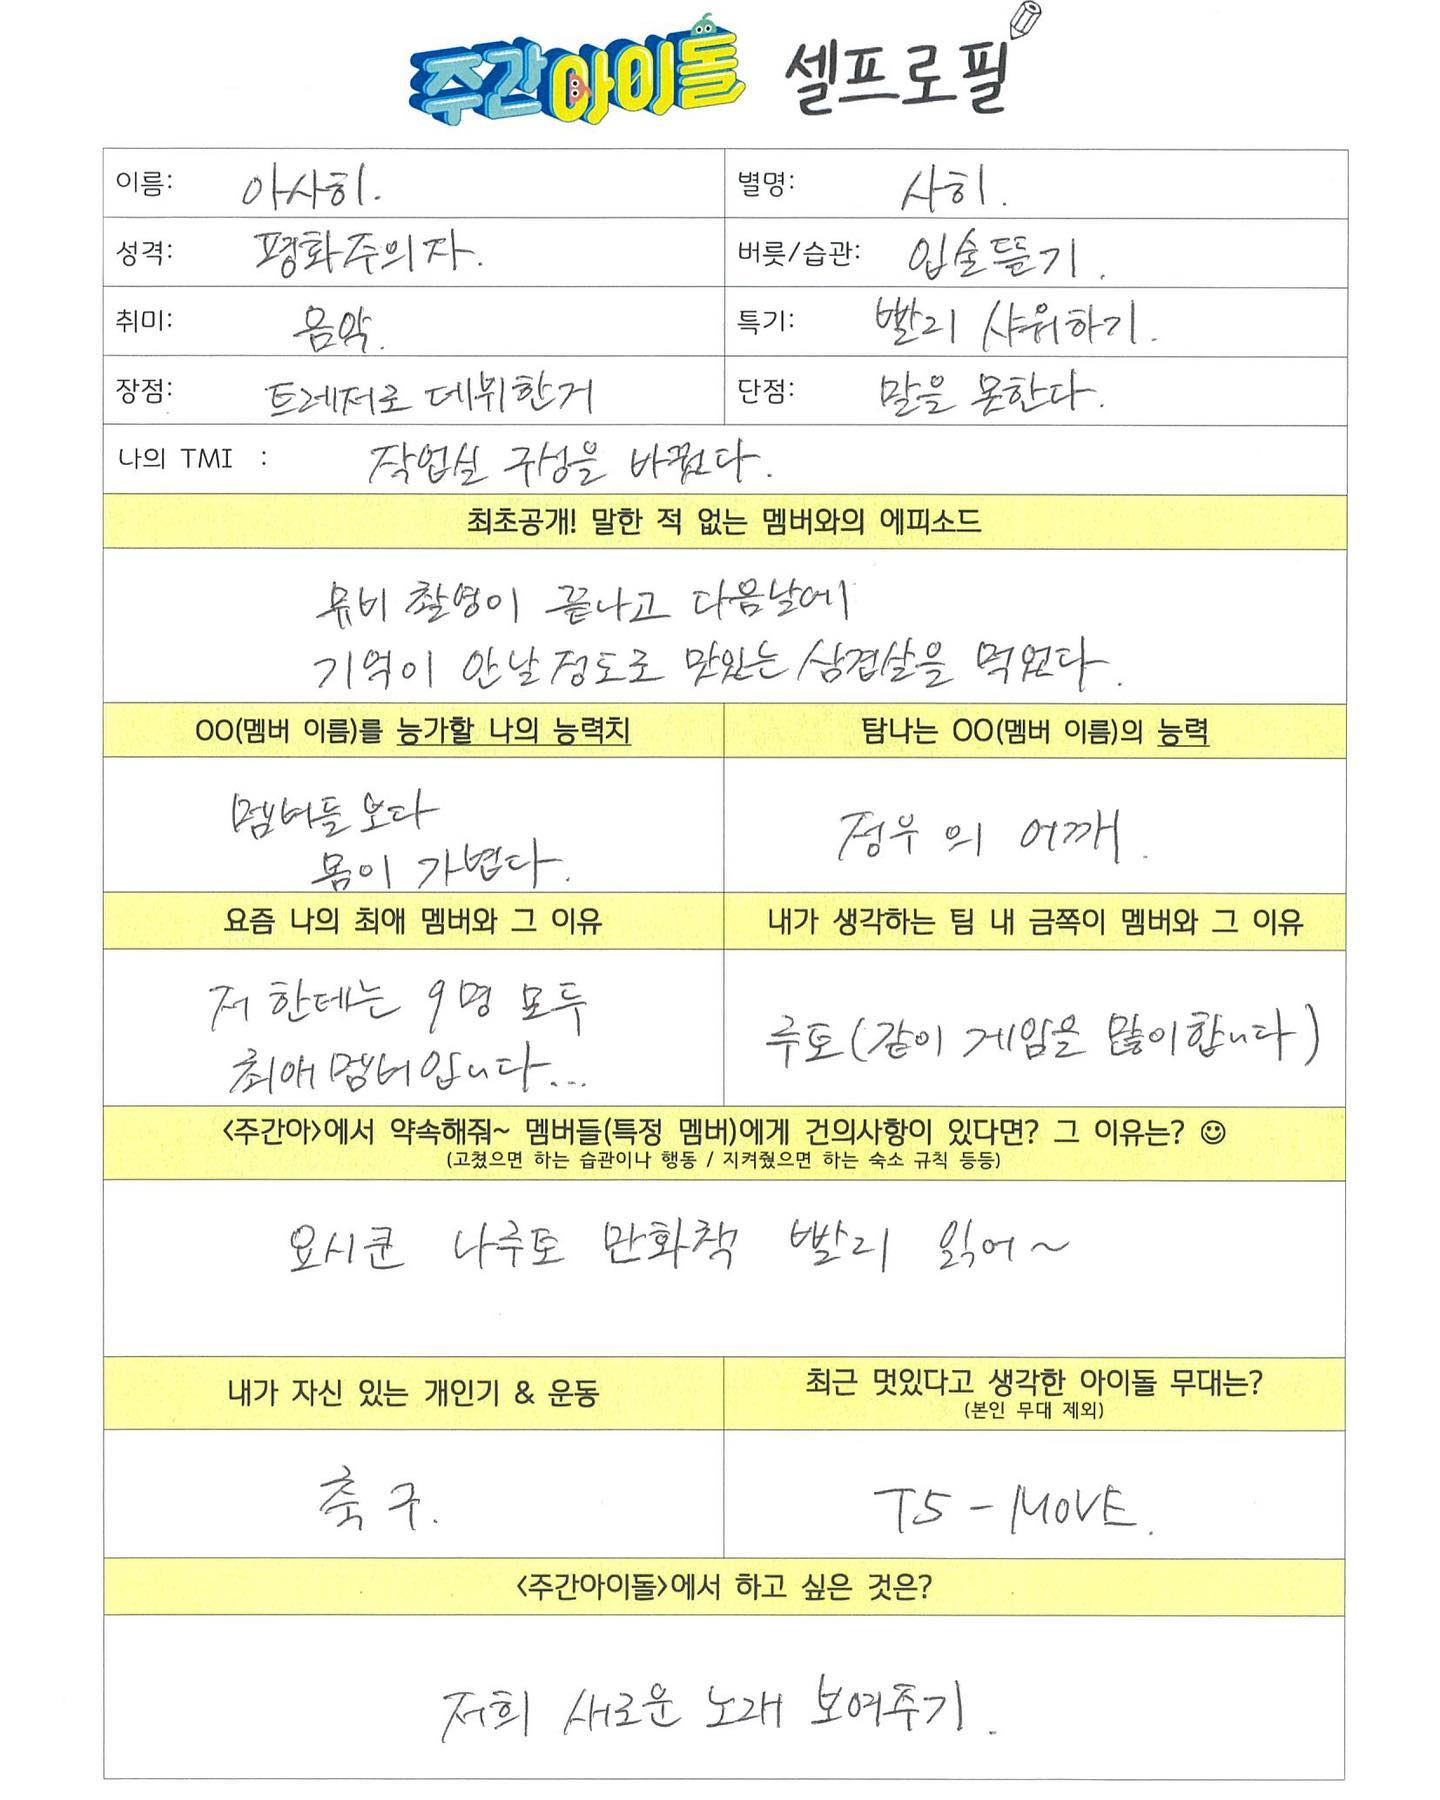 주간아이돌 셀프로필
이름: 아사히.
별명: 사히.
성격: 평화주의자.
버릇/습관: 입술뜯기.
취미: 음악.
특기: 빨리 샤워하기.
장점: 트레저로 데뷔한거
단점: 말을 못한다.
나의 TMI : 작업실 구성을 바꿨다.
최초공개! 말한 적 없는 멤버와의 에피소드
뮤비 촬영이 끝나고 다음날에
기억이 안날정도로 맛있는 삼겹살을 먹었다.
OO(멤버 이름)를 능가할 나의 능력치
멤버들보다
몸이 가볍다.
탐나는 OO(멤버 이름)의 능력
정우의 어깨.
요즘 나의 최애 멤버와 그 이유
저한테는 9명 모두
최애멤버입니다...
내가 생각하는 팀 내 금쪽이 멤버와 그 이유
루토(같이 게임을 많이합니다)
<주간아>에서 약속해줘~ 멤버들(특정 멤버)에게 건의사항이 있다면? 그 이유는? ☺
(고쳤으면 하는 습관이나 행동 / 지켜줬으면 하는 숙소 규칙 등등)
요시쿤 나루토 만화책 빨리 읽어~
내가 자신 있는 개인기 & 운동
축구.
최근 멋있다고 생각한 아이돌 무대는?
(본인 무대 제외)
T5-MOVE.
<주간아이돌>에서 하고 싶은 것은?
저희 새로운 노래 보여주기.